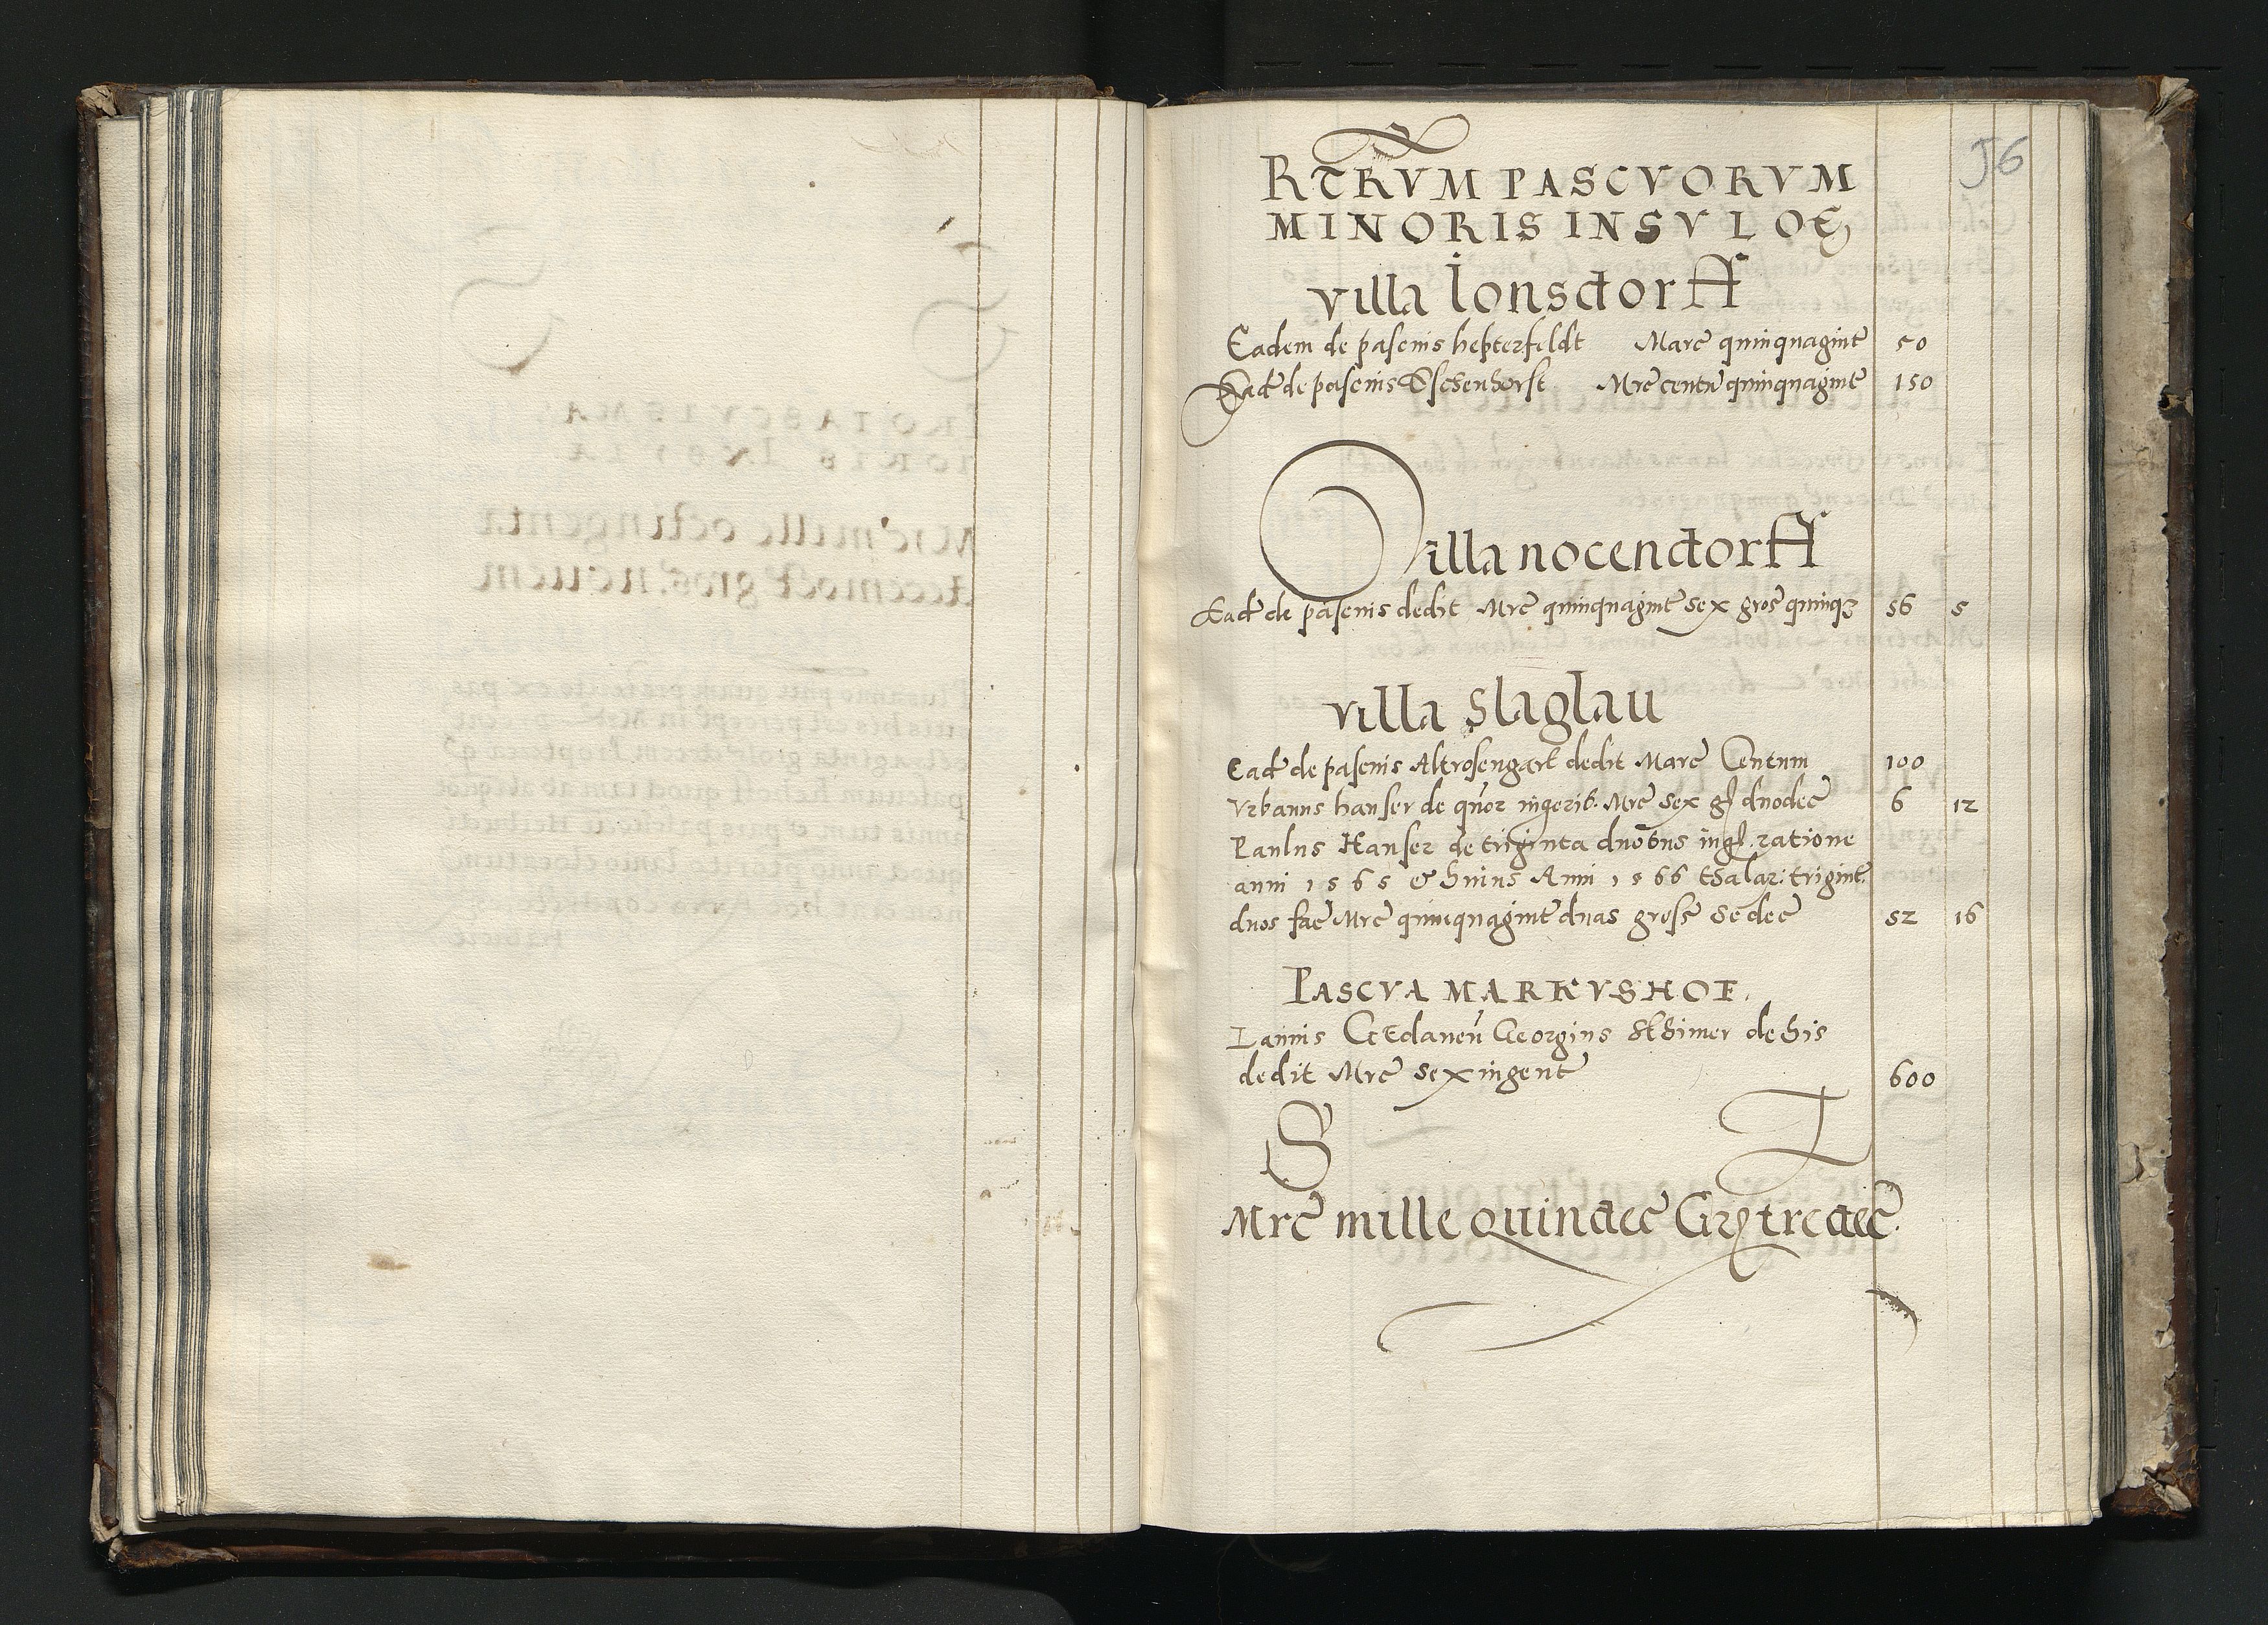 56
RTRVM PASCVORVM
MINORIS INSVLOE
villa Ionsdorff
Eadem de pascuis hepterfeldt Marc quinquagint 50
Ead de pascuis Eschenhorst Mrc centu quinquagint 150
Villa nocendorff
Ead de pascuis dedit Mrc quinquagint sex gros quinqȝ 56 5
villa Slaglau
Ead de pascuis Altrosengart dedit Marc Centum 100
Vrbanus hanser de quor iugerib. Mrc sex gr duodec 6 12
Paulus Hanser de triginta duobus iug. ratione
anni 1565 & huius Anni 1566 thalar: trigint
duos fac Mrc quinquagint duas gross sedec 52 16
PASCVA MARKVSHOF.
Iannis Georgius de his
dedit Mrc sexingent 600
S T
Mrc mille quindec Gr tredec.